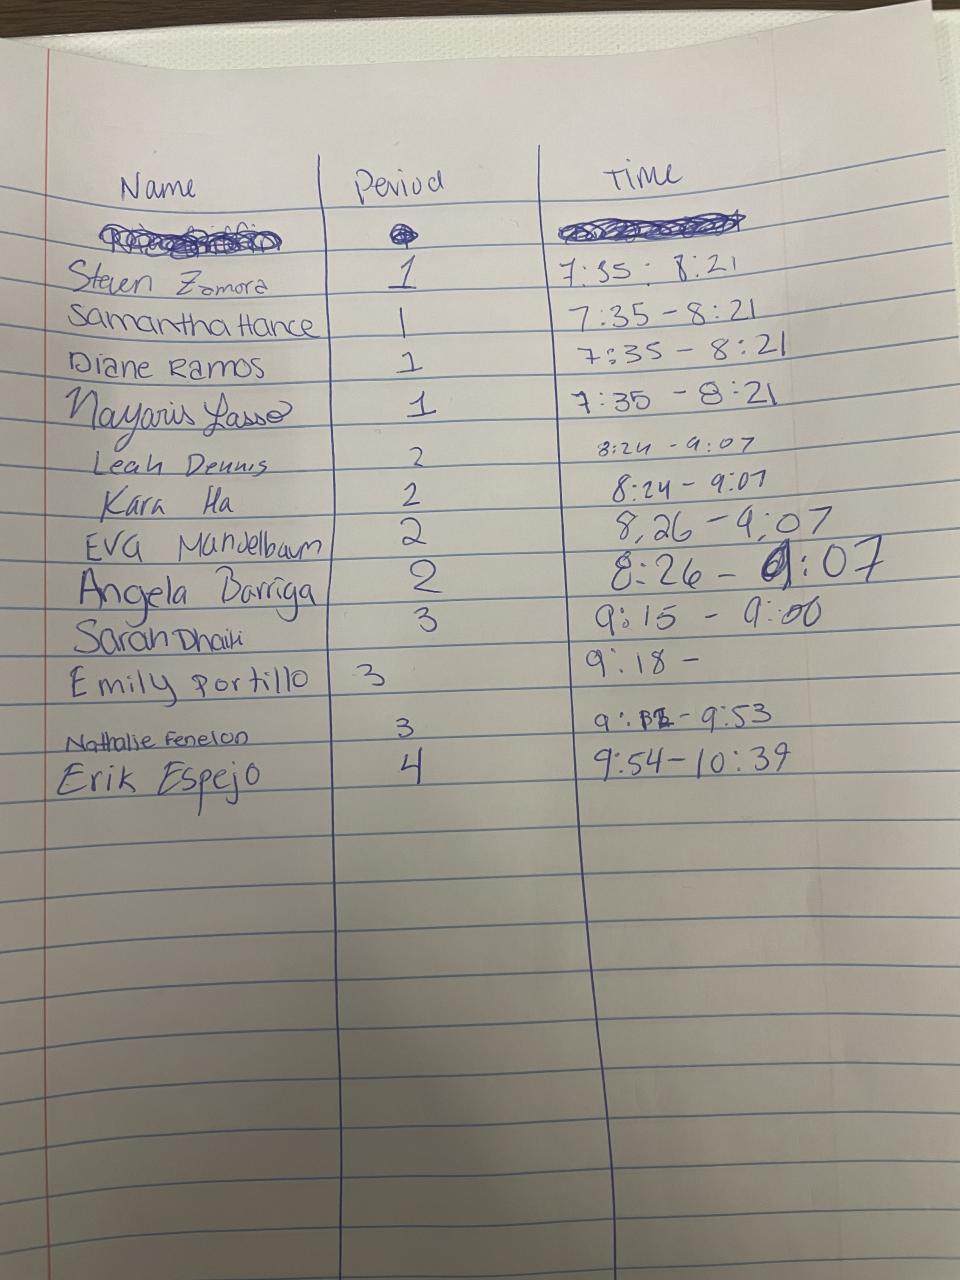 Name Period Time
Steven Zamora 1 7:35 - 8:21
Samantha Hance 1 7:35 - 8:21
Diane Ramos 1 7:35 - 8:21
Nayaris Lasso 1 7:35 - 8:21
Leah Dennis 2 8:24 - 9:07
Kara Ha 2 8:24 - 9:07
EVA Mandelbaum 2 8:26 - 9:07
Angela Barriga 2 8:26 - 9:07
Sarah 3 9:15 - 9:00
Emily Portillo 3 9:18 -
Nathalie Fenelon 3 - 9:53
Erik Espejo 4 9:54 - 10:39